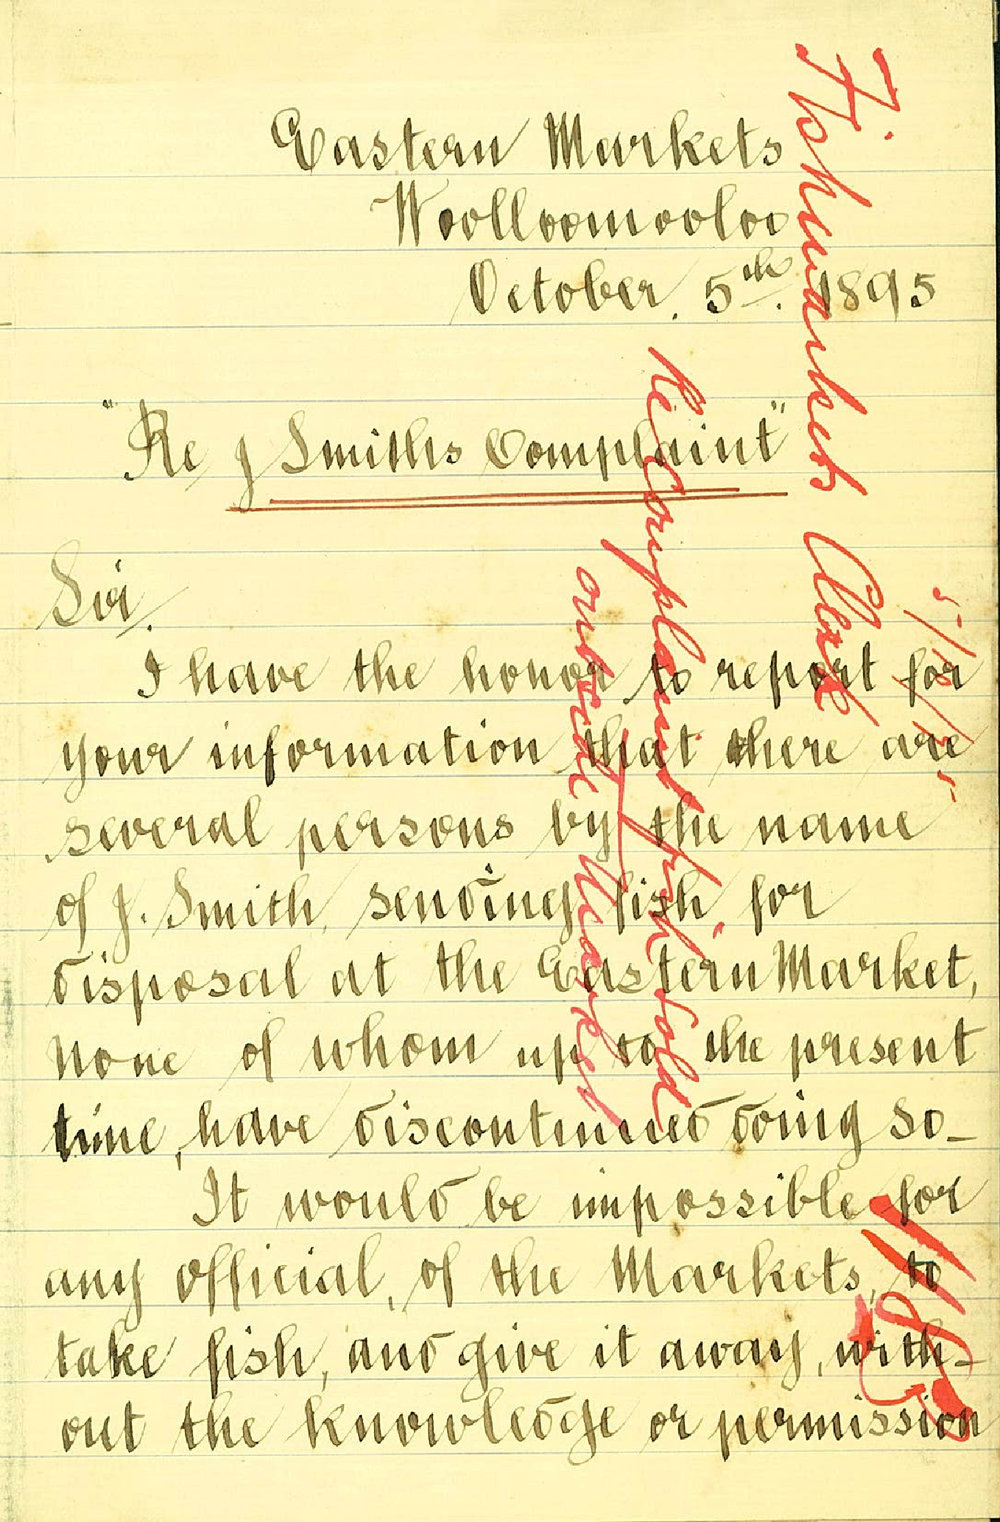 Eastern Markets
Woolloomooloo
October. 5th. 1895
"Re J Smiths Complaint"
Sir.
I have the honor to report for
your information that there are
several persons by the name
of J. Smith, sending fish for
disposal at the Eastern Market,
none of whom up to the present
time, have discontinued doing so_
It would be impossible for
any official, of the Markets, to
take fish, and give it away, with-
out the knowledge or permission
Fishmarkets Clerk
5/10/95
Re Complaint fish sold
outside Market